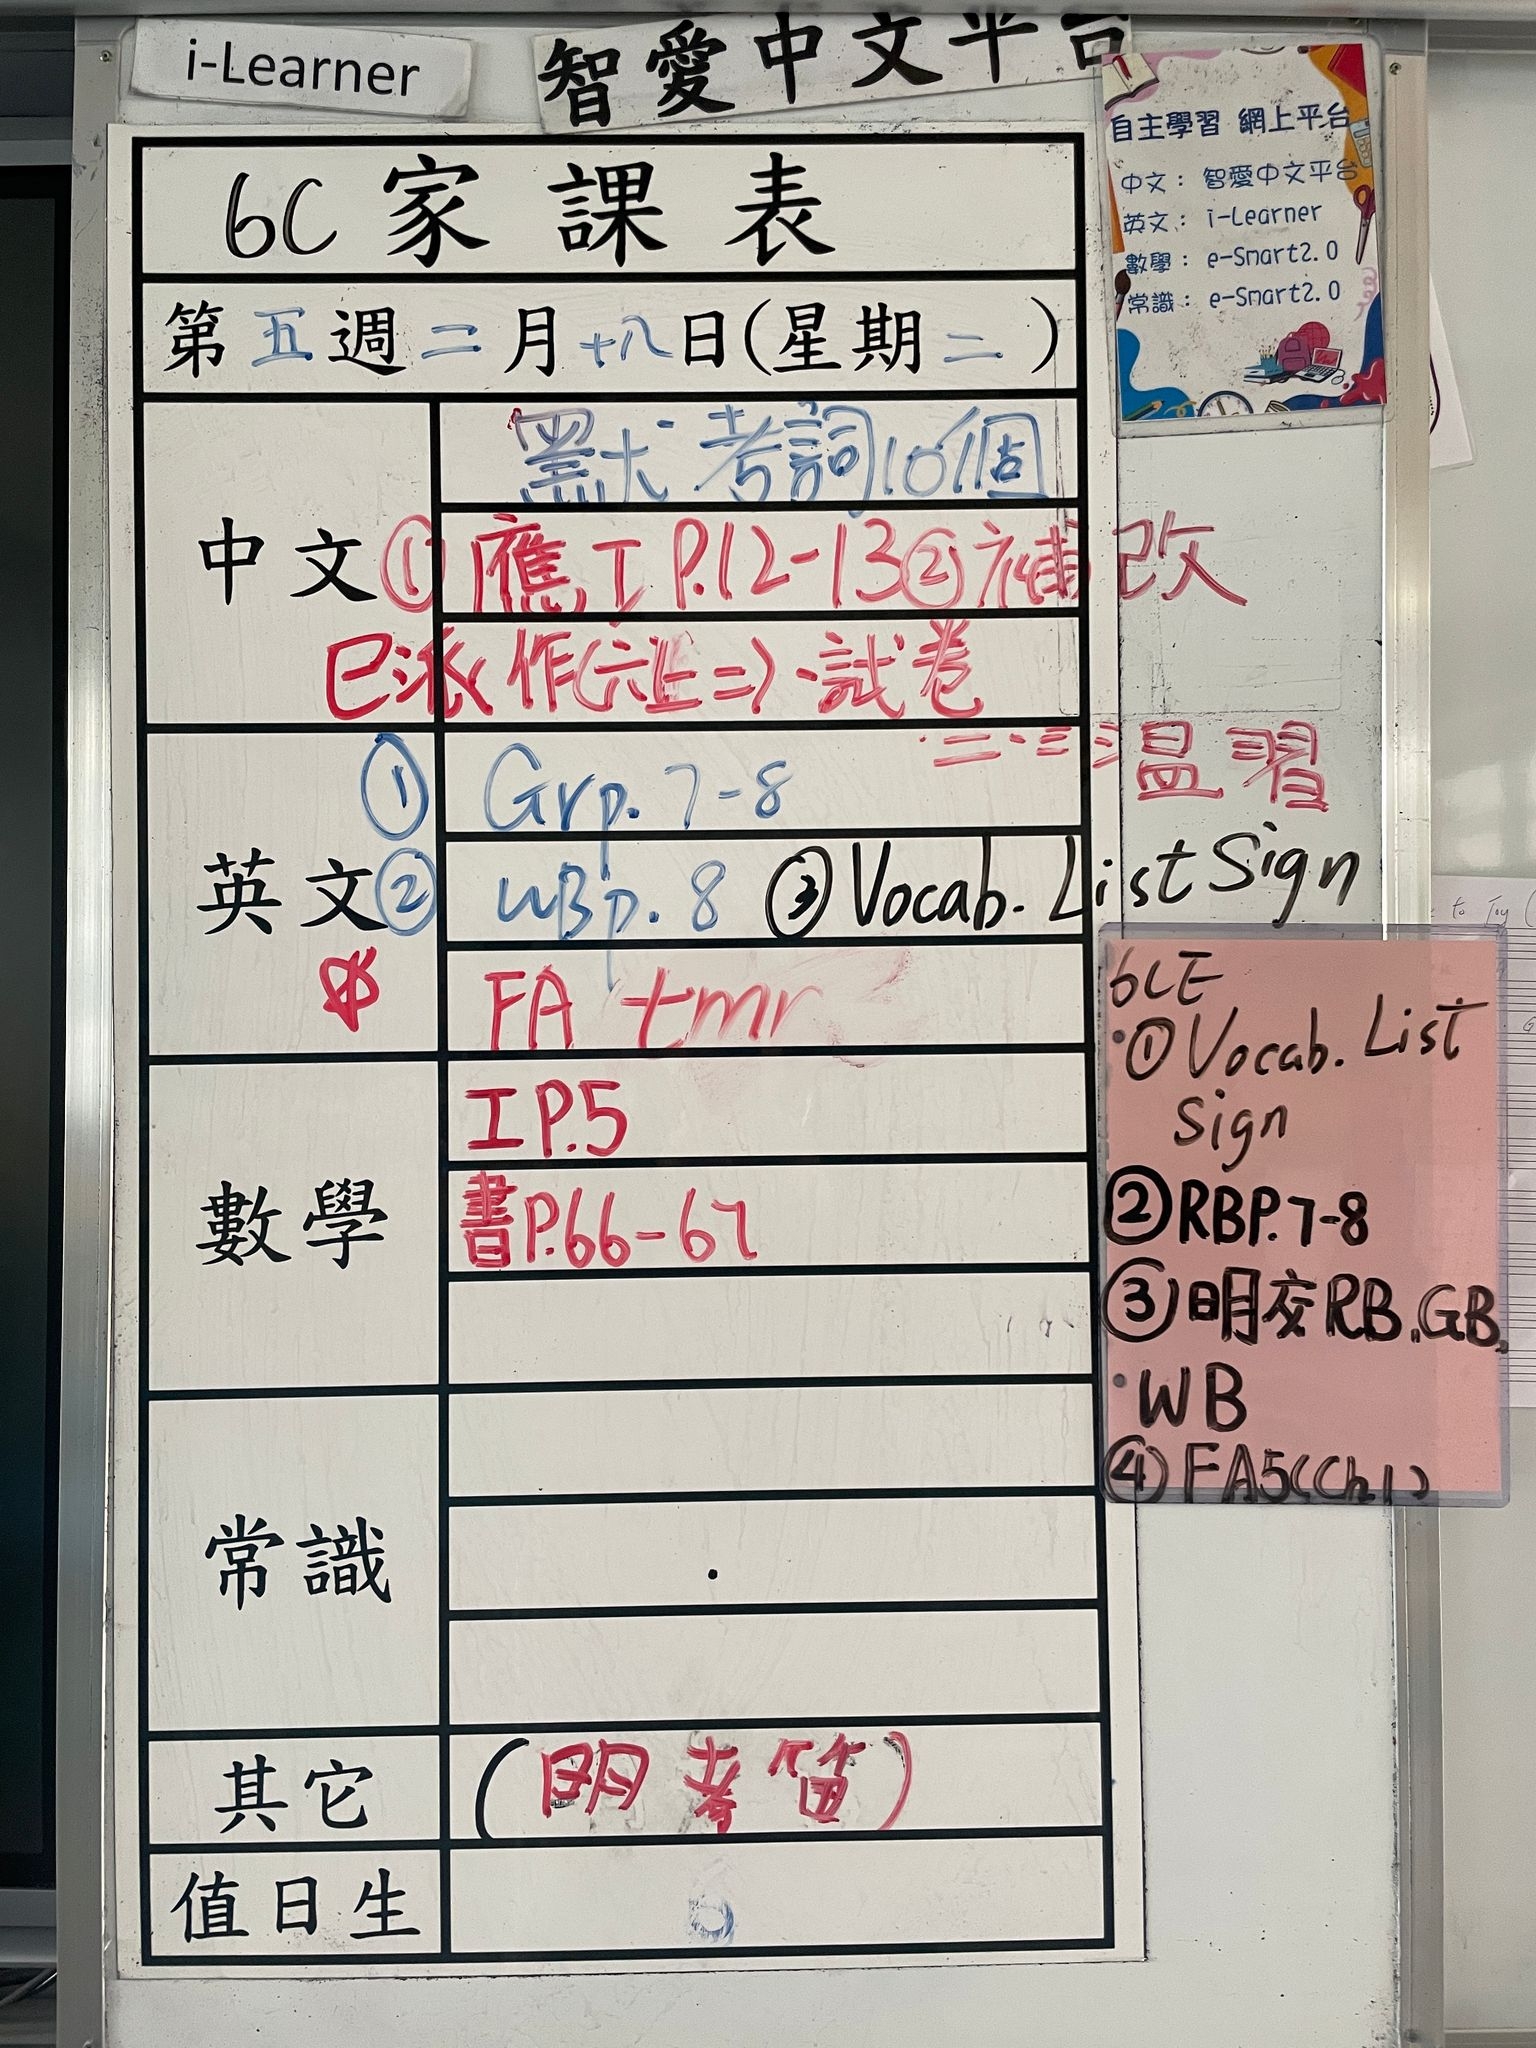 i-Learner
智愛中文平台
自主學習 網上平台
中文： 智愛中文平台
英文： i-Learner
數學： e-Smart2.0
常識： e-Smart2.0
6C 家課表
第五週二月十八日(星期二)
中文
默考詞10個
① 應工P.12-13 ② 補改
已派作(六上二)、試卷
溫習
英文
① Grp.7-8
② WBp.8 ③ Vocab. List Sign
FA tmr
數學
工P.5
書P.66-67
常識
其它
(明考笛)
值日生
6CE
① Vocab. List
Sign
② RBP.7-8
③ 明交RB,GB,
WB
④ FA5(Ch.1)